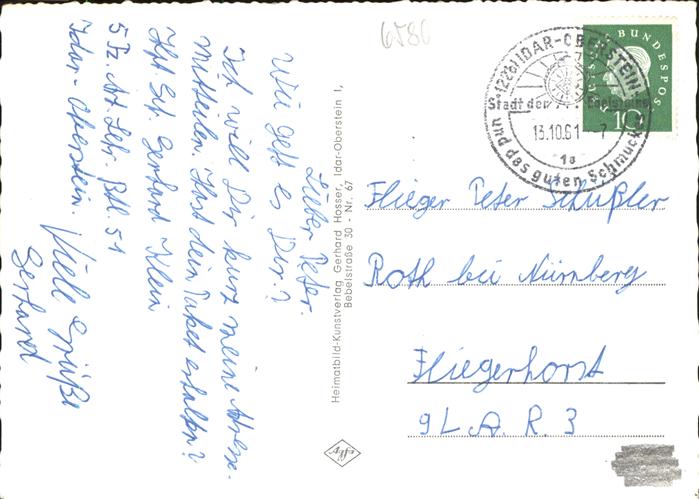 6580
Lieber Peter.
Wie geht es Dir?
Ich will Dir kurz meine Adresse
mitteilen. Hast dein Paket erhalten?
Gerhard Klein
5 Pz. Art. Lehr. Btl. 51
Idar-Oberstein.
Viele Grüße
Gerhard
Heimatbild-Kunstverlag Gerhard Hosser, Idar-Oberstein 1,
Bebelstraße 30 - Nr. 67
(22b) IDAR-OBERSTEIN
Stadt der Edelsteine
13.10.61 - 7
1a
und des guten Schmuckes
BUNDESPOST
10
Flieger Peter Schüßler
Roth bei Nürnberg
Fliegerhorst
9 L. A. R. 3